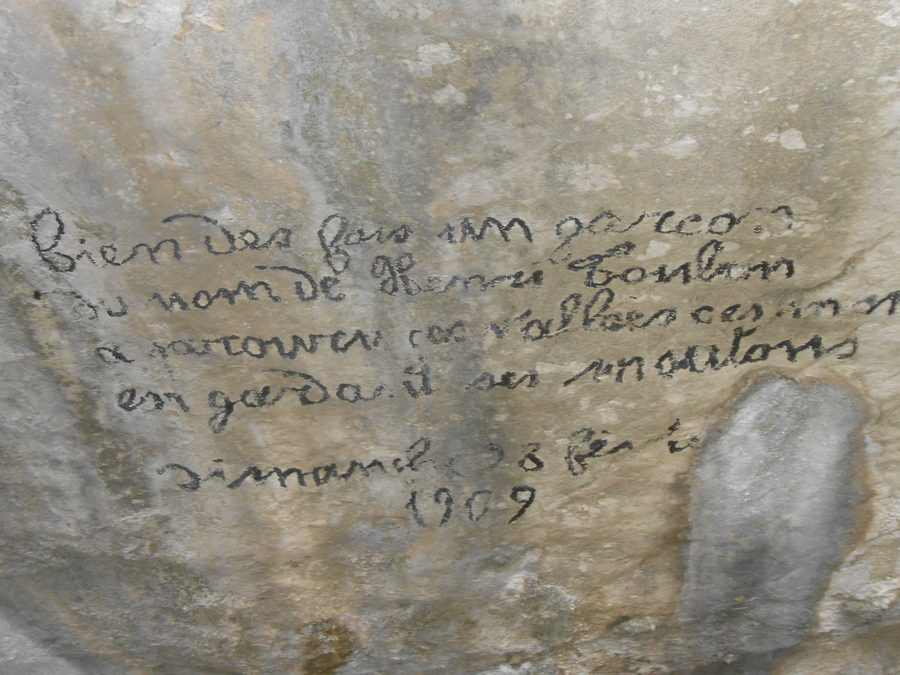 bien des fois un garcon
du nom de Henri Toulon
a parcouru ces vallées ces
en gardant ses moutons
dimanche 28
1909